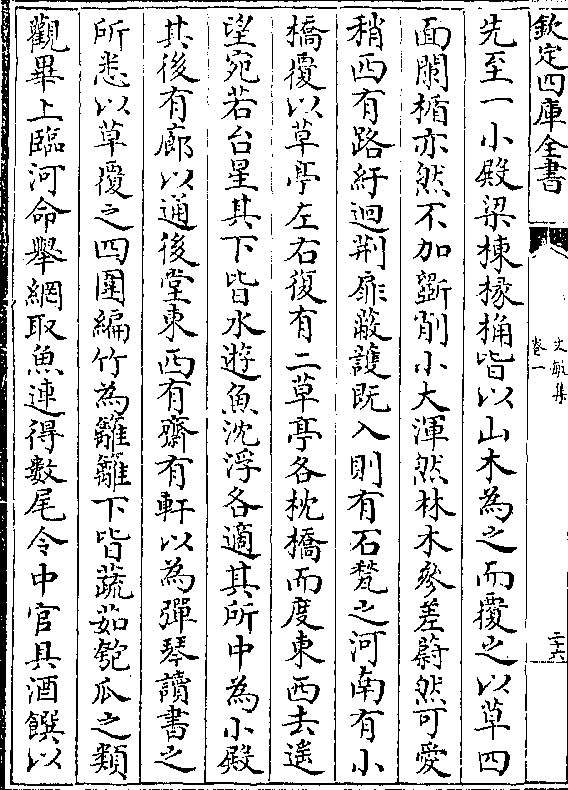 欽定四庫全書
文敏集
卷一
二十六
先至一小殿梁棟椽桷皆以山木為之而覆之以草四
面闌楯亦然不加斲削小大渾然林木參差蔚然可愛
稍西有路紆迴荆扉蔽護既入則有石甃之河南有小
橋覆以草亭左右復有二草亭各枕橋而度東西去遙
望宛若台星其下皆水遊魚沈浮各適其所中為小殿
其後有廊以通後堂東西有齋有軒以為彈琴讀書之
所悉以草覆之四圍編竹為籬籬下皆蔬茹匏瓜之類
觀畢上臨河命舉網取魚連得數尾令中官具酒饌以